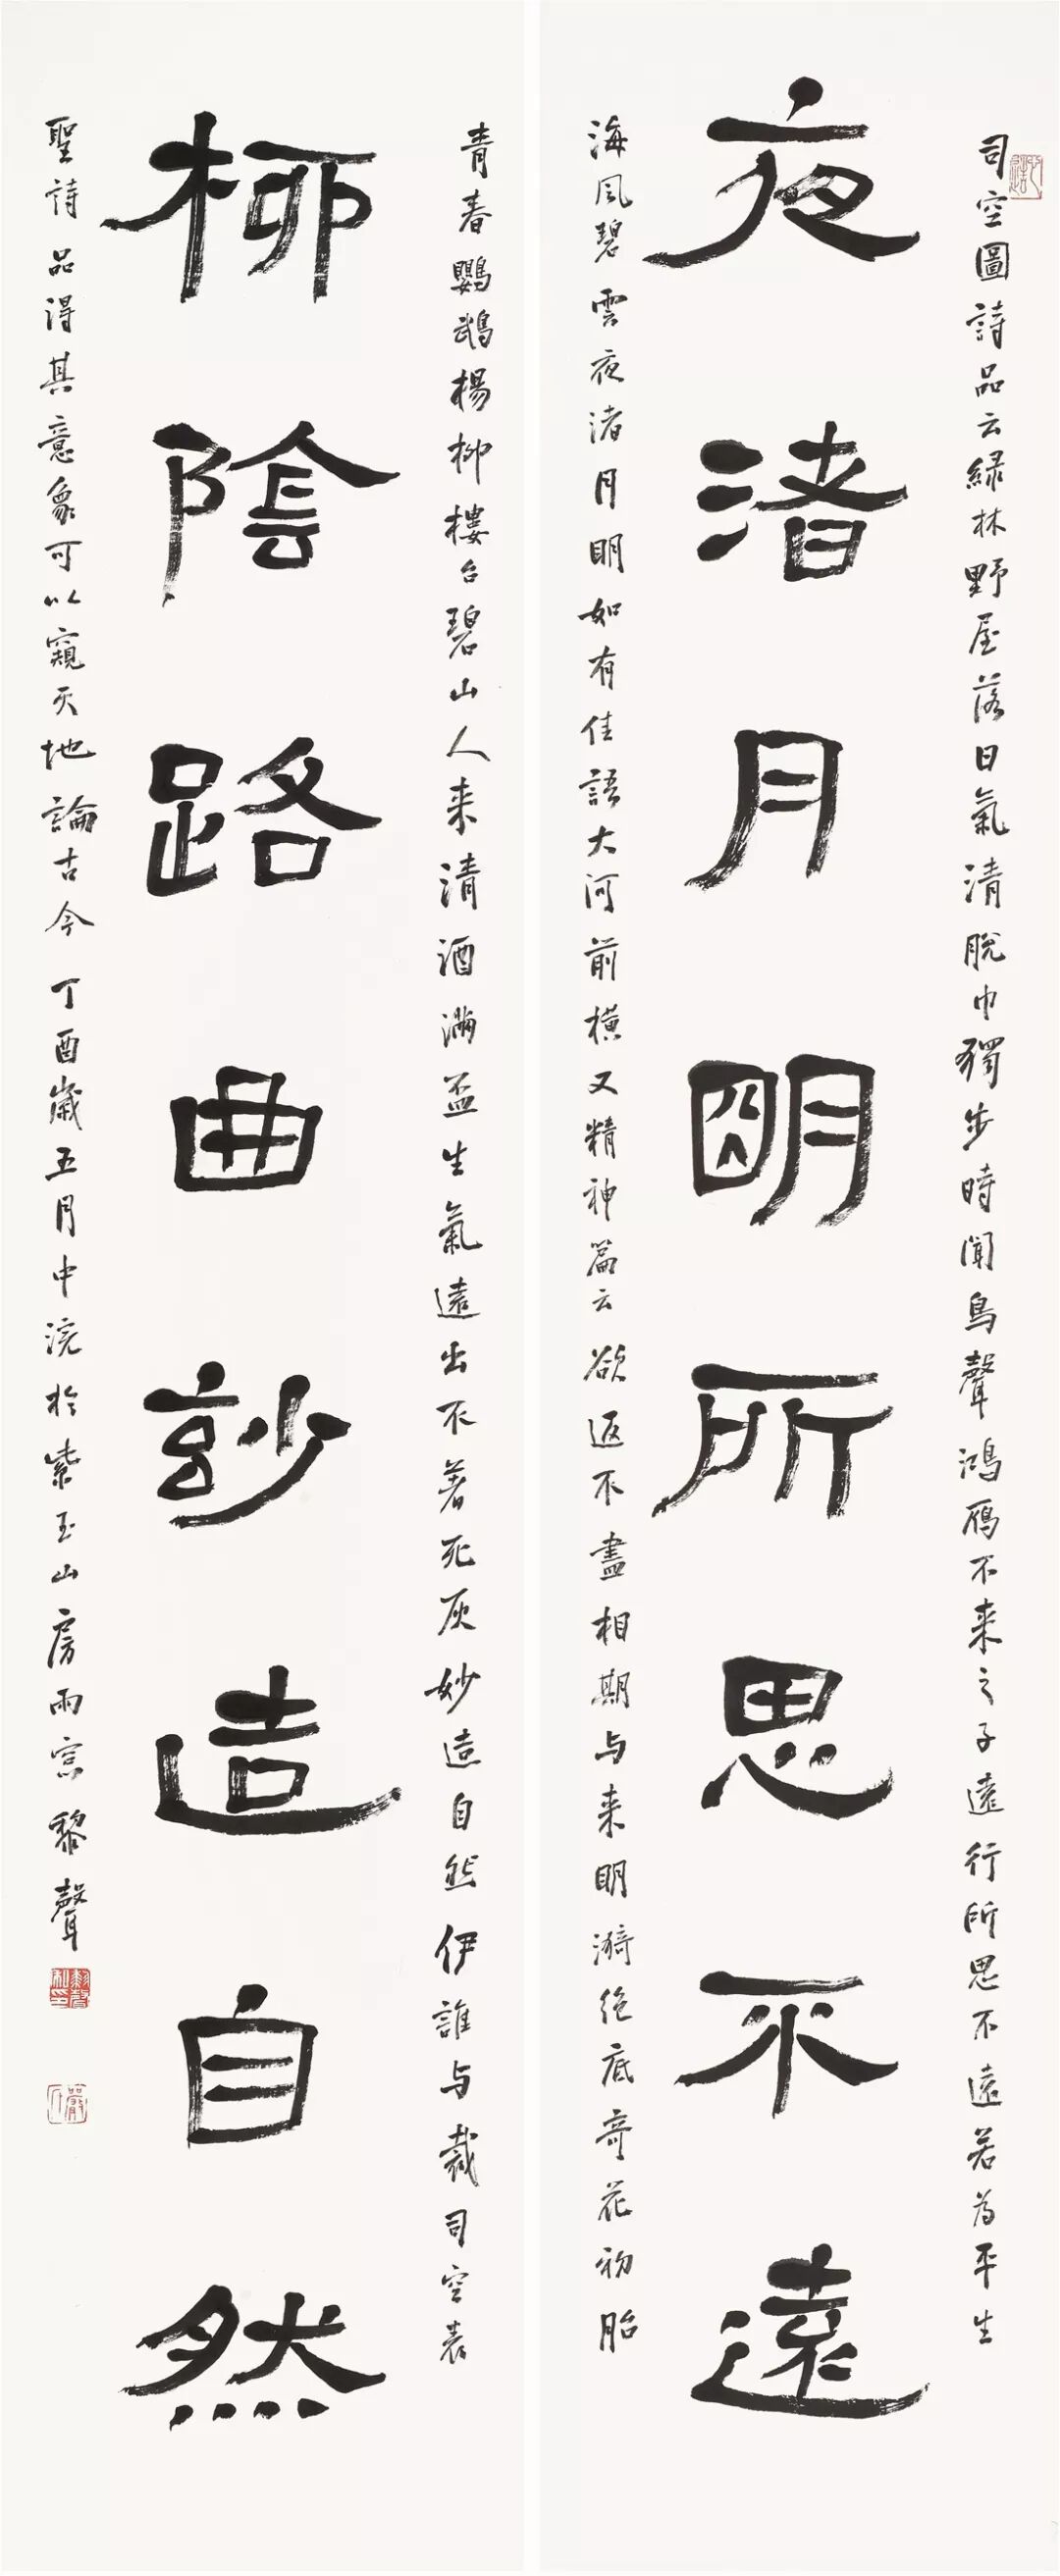 司空圖詩品云綠林野屋落日氣清脫巾獨步時聞鳥聲鴻雁不來之子遠行所思不遠若為平生
夜渚月明所思不遠
海風碧雲夜渚月明如有佳語大河前橫又精神篇云欲返不盡相期与来明漪絕底奇花初胎
青春鸚鵡楊柳樓台碧山人来清酒滿盃生氣遠出不著死灰妙造自然伊誰与裁司空表
柳陰路曲玅造自然
聖詩品得其意象可以窺天地論古今 丁酉歲五月中浣於紫玉山房雨窓 黎聲